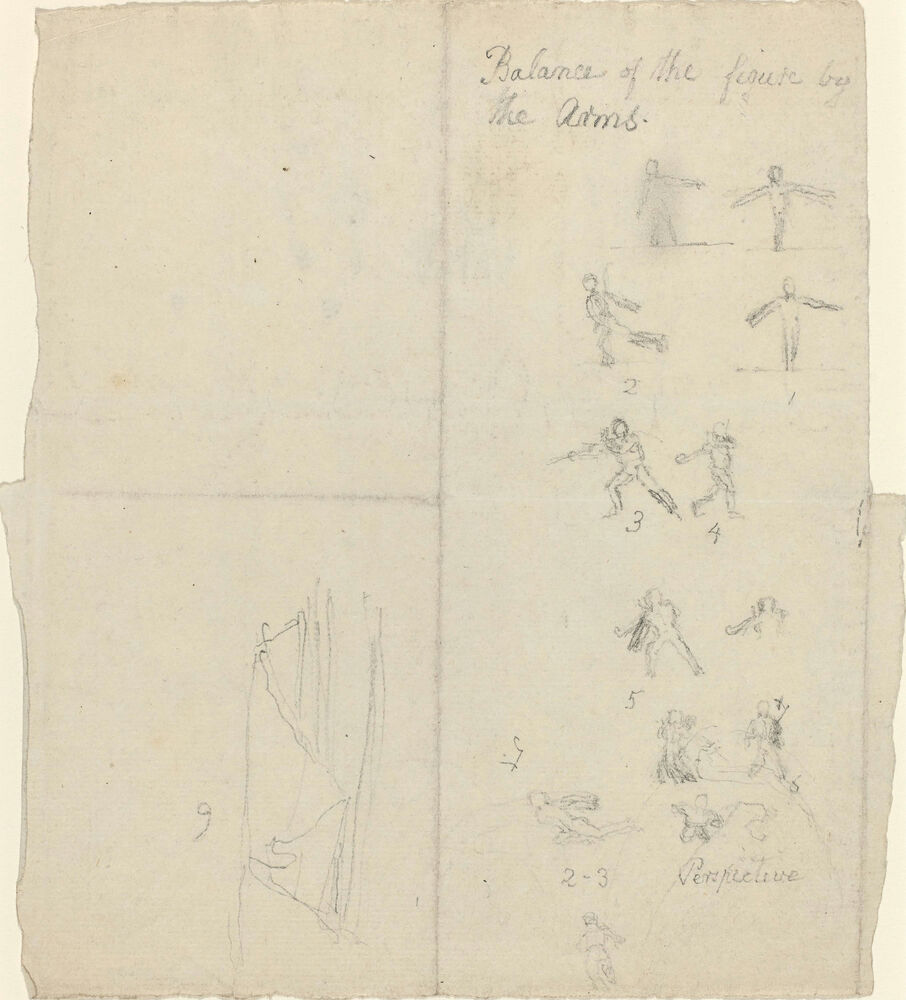 Balance of the figure by
the Arms.
2 1
3 4
5
9
2-3 Perspective